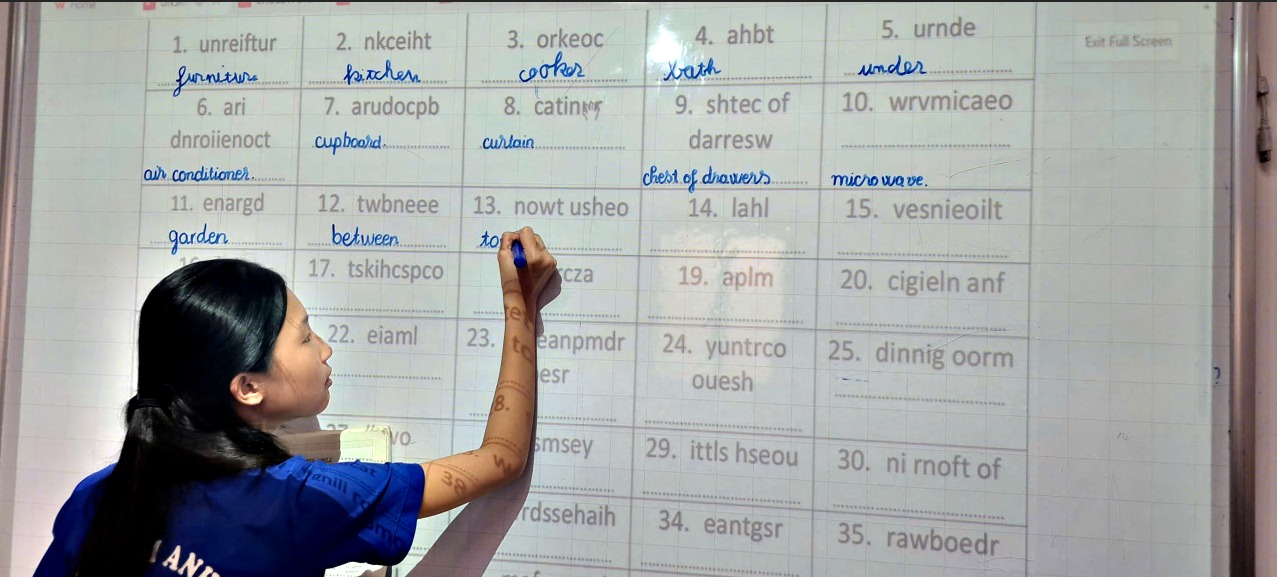 Home
Exit Full Screen
1. unreiftur
2. nkceiht
3. orkeoc
4. ahbt
5. urnde
furniture
kitchen
cooker
bath
under
6. ari
7. arudocpb
8. catin
9. shtec of
10. wrvmicaeo
dnroiienoct
darresw
cupboard
curtain
air conditioner
chest of drawers
microwave.
11. enargd
12. twbneee
13. nowt usheo
14. lahl
15. vesnieoilt
garden
between
to
17. tskihcspco
cza
19. aplm
20. cigieln anf
22. eiaml
23. eanpmdr
24. yuntrco
25. dinnig oorm
esr
ouesh
smsey
29. ittls hseou
30. ni rnoft of
rdssehaih
34. eantgsr
35. rawboedr
8.
38